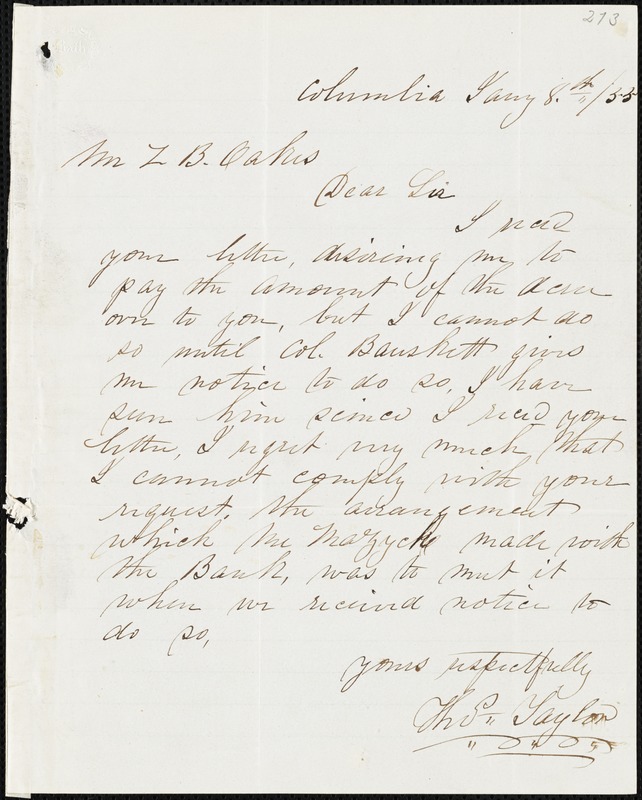 273
Columbia Jany 8.th/55
Mr Z B. Oakes
Dear Sir
I recd
your letter, desiring me to
pay the amount of the decree
over to you, but I cannot do
so until Col. Bauskett gives
me notice to do so, I have
seen him scince I recd your
letter, I regret very much, that
I cannot comply with your
request. the arrangement
which Mr Mazyck made with
the Bank, was to meet it
when we received notice to
do so,
yours respectfully
Thos Taylor